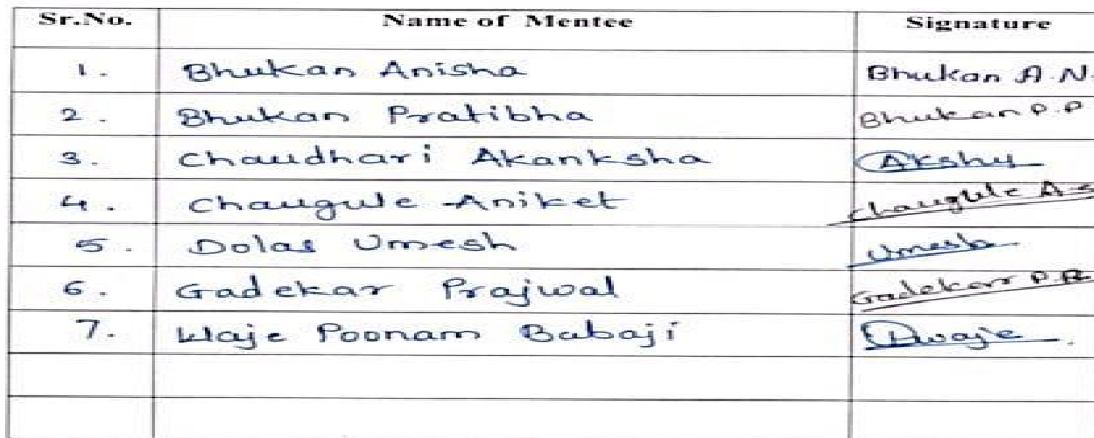 Sr.No. Name of Mentee Signature
1. Bhukan Anisha Bhukan A.N.
2. Bhukan Pratibha Bhukan P.P
3. Chaudhari Akanksha Akshu
4. Chaugule Aniket Chaugule A.S
5. Dolas Umesh Umesh
6. Gadekar Prajwal Gadekar P.R
7. Waje Poonam Babaji Pwaje.